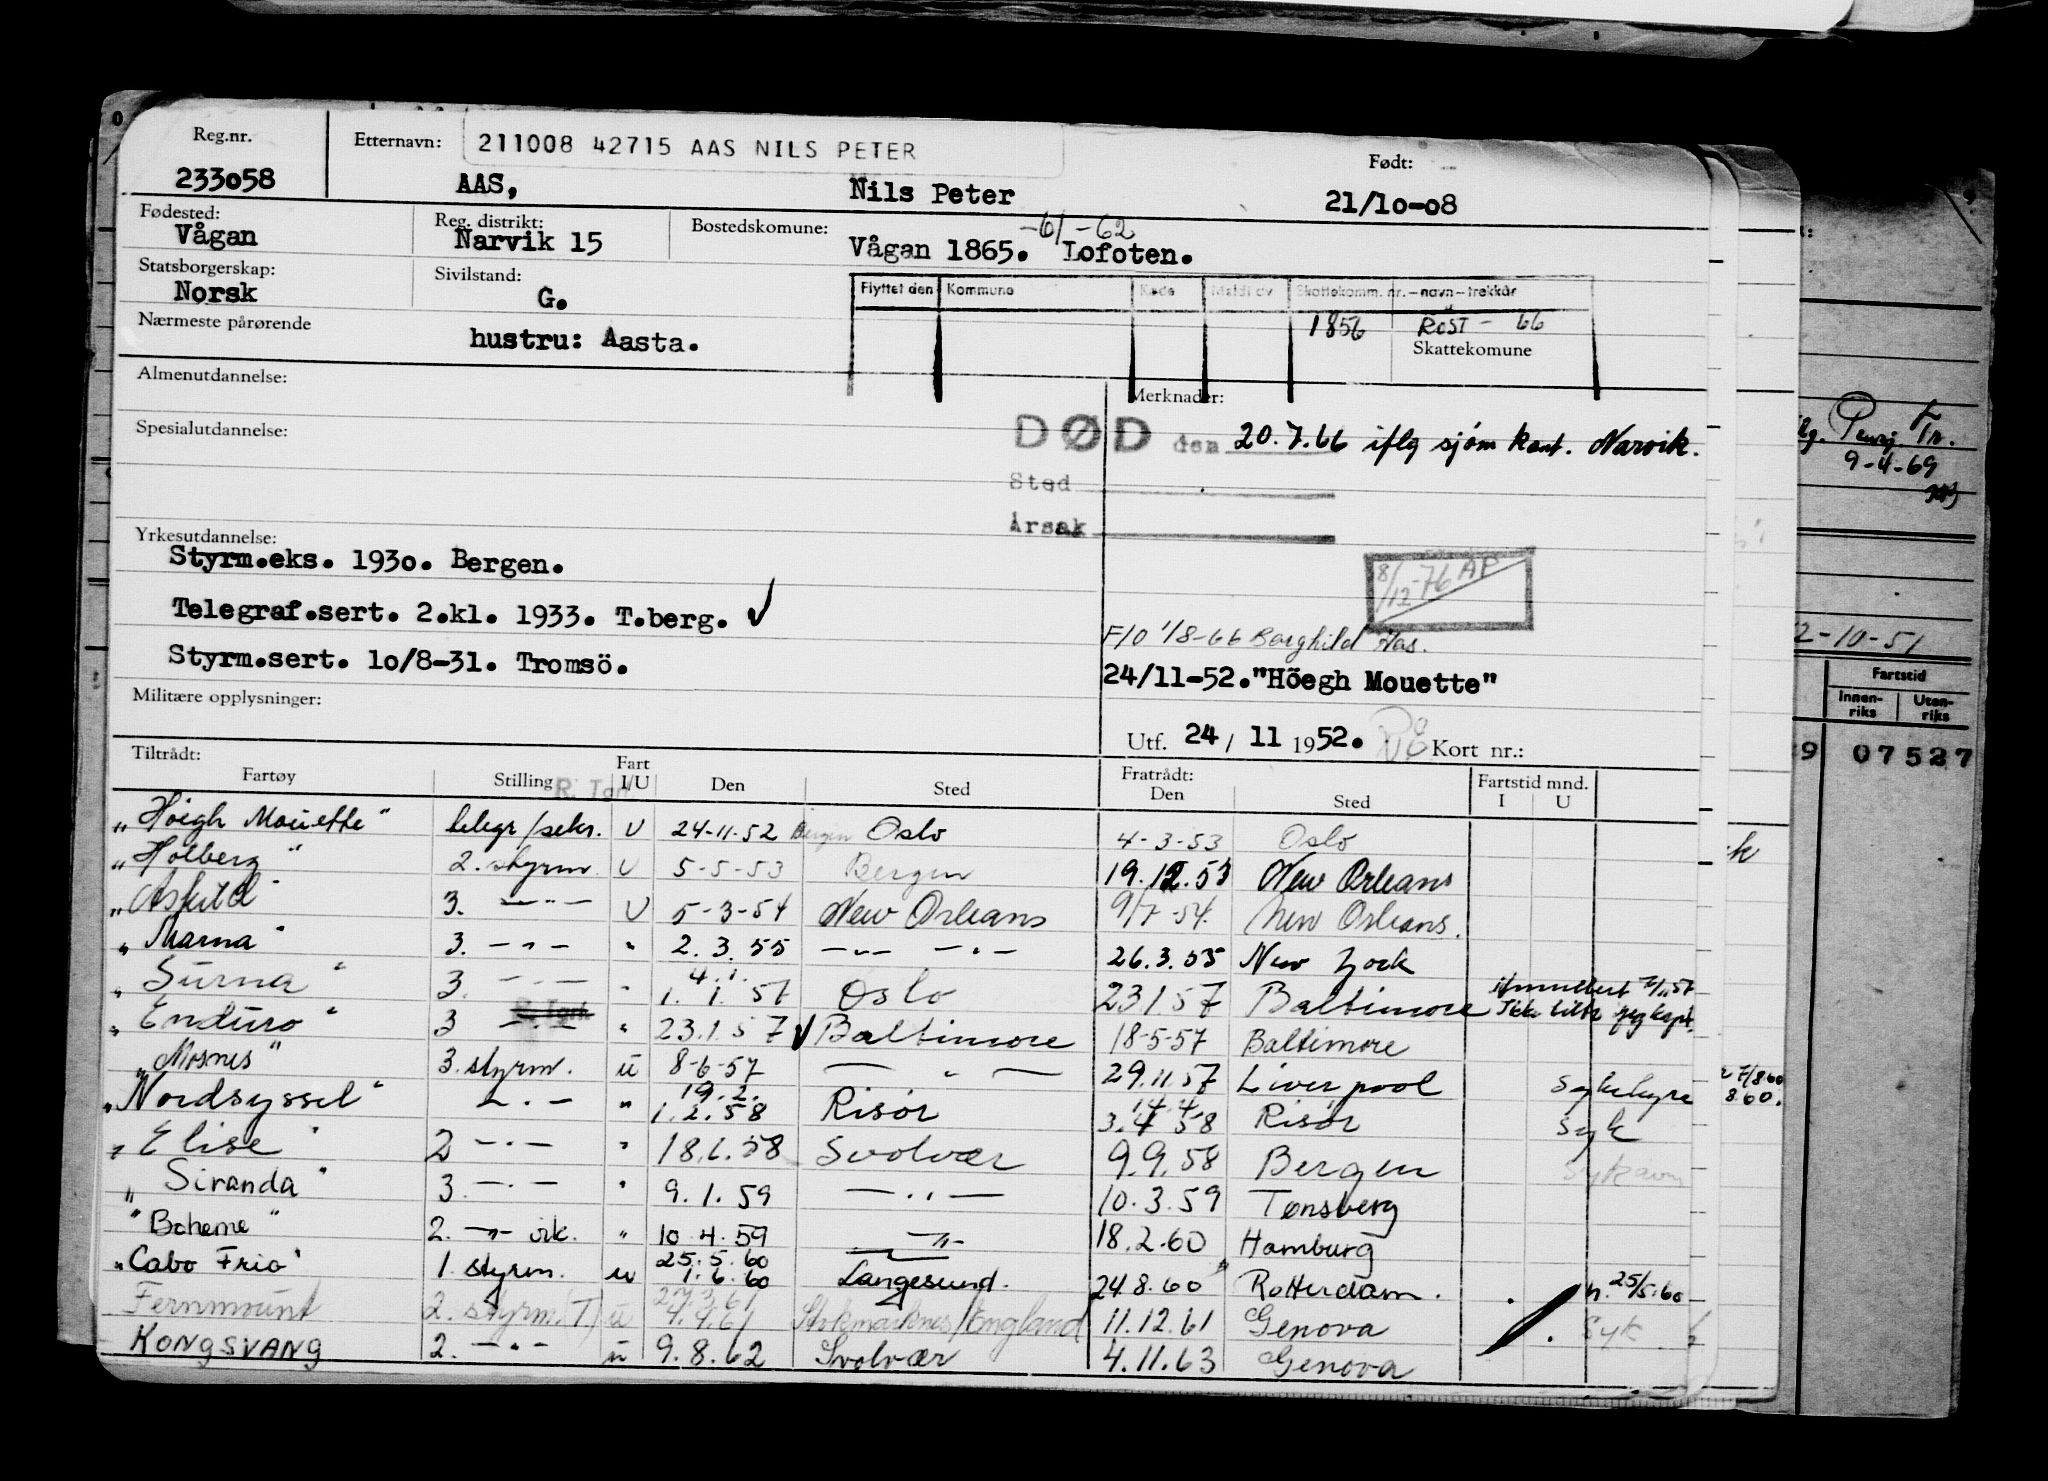 Reg.nr. Etternavn: 211008 42715 AAS NILS PETER Født:
233o58 AAS, Nils Peter 21/1o-o8
Fødested: Reg. distrikt: Bostedskomune: -61 -62
Vågan Narvik 15 Vågan 1865. Lofoten.
Statsborgerskap: Sivilstand: Flyttet den Kommune Kode Meldt av Skattekomm. nr.-navn-trekkår
Norsk G. 1856 RØST - 66
Nærmeste pårørende hustru: Aasta. Skattekomune
Almenutdannelse: Merknader:
Spesialutdannelse: DØD den 20.7.66 iflg sjøm kont. Narvik.
Sted
Årsak
Yrkesutdannelse:
Styrm.eks. 193o. Bergen.
8/12-76 AP
Telegraf.sert. 2.kl. 1933. T.berg.
F/O 1/8-66 Borghild Aas.
Styrm.sert. 1o/8-31. Tromsö.
24/11-52."Höegh Mouette"
Militære opplysninger:
Utf. 24/ 11 1952. Kort nr.:
Tiltrådt: Fratrådt: Fartstid mnd.
Fartøy Stilling Fart I/U Den Sted Den Sted I U
"Höigh Mouette" telegr/sekr. U 24-11-52 Bergen Oslo 4-3-53 Oslo
"Holberg" 2. styrm U 5-5-53 Bergen 19.12.53 New Orleans
"Askild" 3. -"- U 5-3-54 New Orleans 9/7-54. New Orleans.
"Marna" 3. -"- " 2.3.55 -"- -"- 26.3.55 New York
"Surna" 3. -"- " 4.1. 1.1.57 Oslo 23.1.57 Baltimore
"Enduro" 3 -"- " 23.1.57 Baltimore 18-5-57 Baltimore
"Mosnes" 3. styrm. u 8-6-57 -"- 29.11.57 Liverpool Sykehyre
"Nordsyssel" -"- " 19.2. 1.2.58 Risør 14.4. 3.4.58 Risør Syk
"Elise" 2 -"- " 18.6.58 Svolvær 9.9.58 Bergen
"Siranda" 3. -"- " 9.1.59 -"- 10.3.59 Tønsberg
"Boheme" 2. -"- vik. " 10.4.59 -"- 18.2.60 Hamburg
"Cabo Frio" 1. styrm. u 25.5.60 1.6.60 Langesund. 24.8.60 Rotterdam. 25/5.60
Fernmount 2. styrm. (T) u 27.3.61 4.4.61 Stokmarknes/England 11.12.61 Genova Syk
KONGSVANG 2. -"- u 9.8.62 Svolvær 4.11.63 Genova
9-4-69
2-10-51
Fartstid
Innen-riks Uten-riks
9 07527